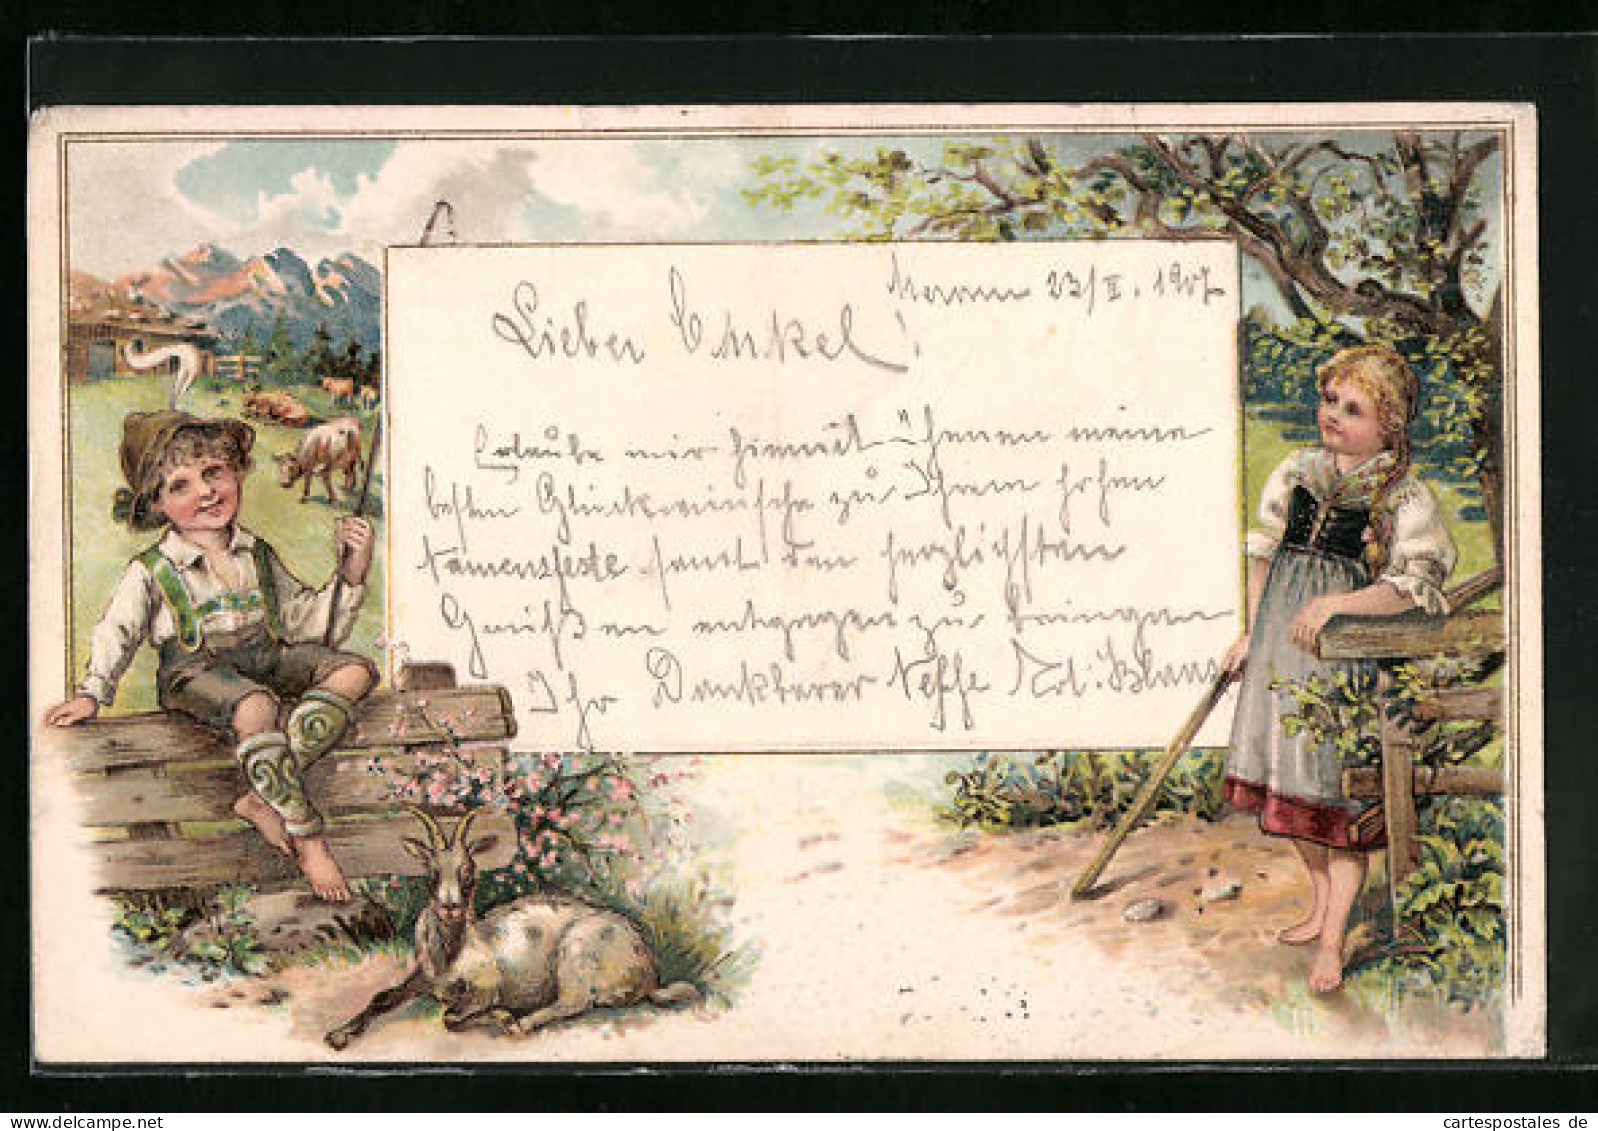 Meran 23/II. 1907
Lieber Onkel!
Erlaube mir hiemit Ihnen meine
besten Glückwünsche zu Ihrem hohen
Namensfeste samt den herzlichsten
Grüßen entgegen zu bringen
Ihr Dankbarer Neffe
cartespostales de